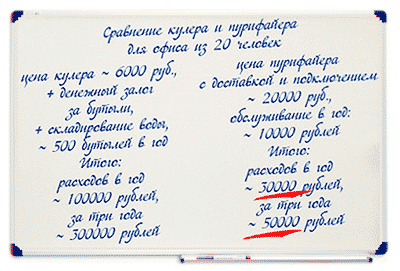 Сравнение кулера и пурифайера
для офиса из 20 человек
цена кулера ~ 6000 руб.,
+ денежный залог
за бутыли,
+ складирование воды,
~ 500 бутылей в год
Итого:
расходов в год
~ 100000 рублей,
за три года
~ 300000 рублей
цена пурифайера
с доставкой и подключением
~ 20000 руб.,
обслуживание в год:
~ 10000 рублей
Итого:
расходов в год
~ 30000 рублей,
за три года
~ 50000 рублей